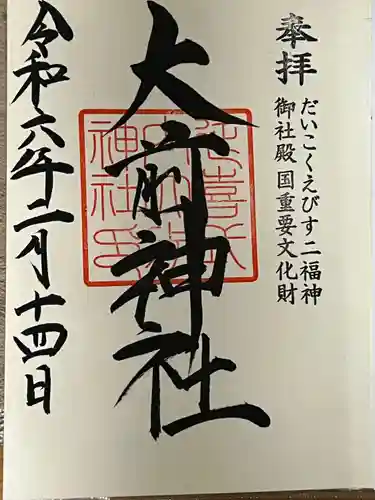 奉拝
だいこくえびす二福神
御社殿 国重要文化財
大前神社
令和六年二月十四日